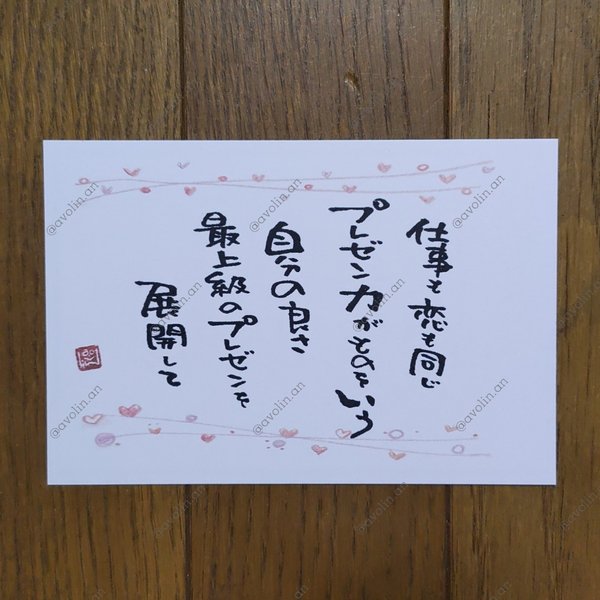 仕事も恋も同じ
プレゼン力がものをいう
自分の良さ
最上級のプレゼンを
展開して
@avolin.an